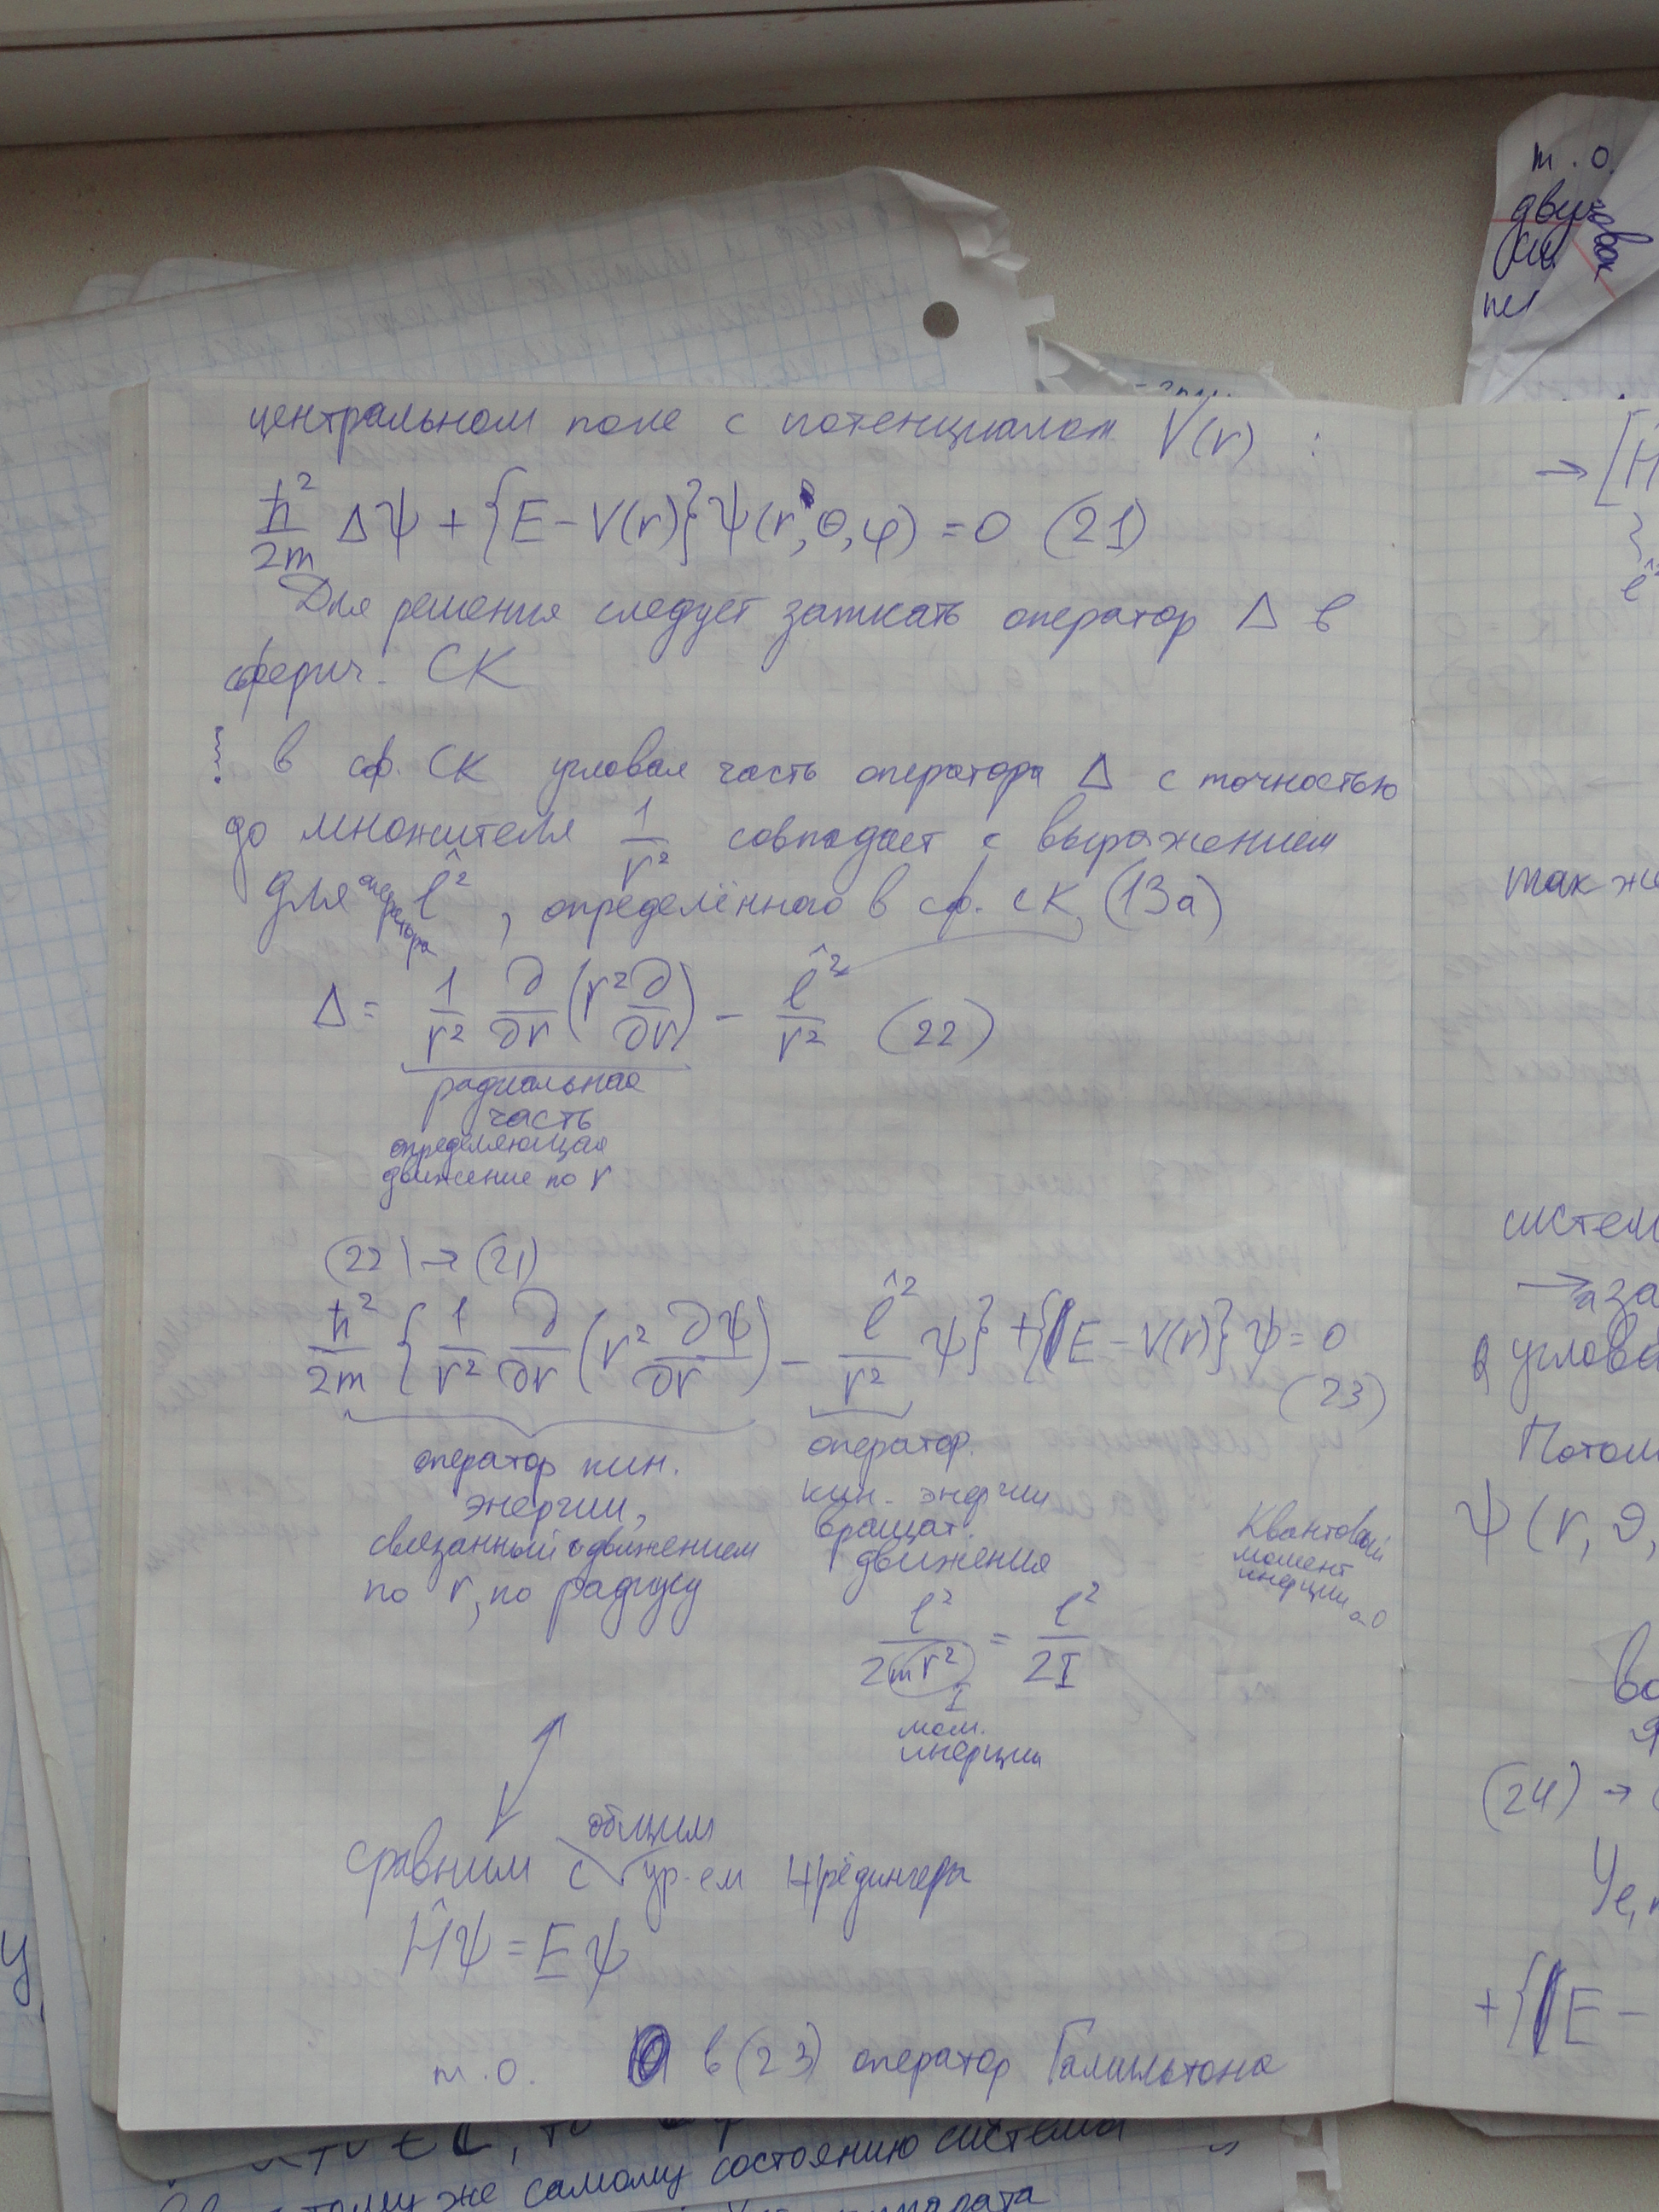 центральном поле с потенциалом V(r) :
ħ²/2m Δψ + {E − V(r)}ψ(r, θ, φ) = 0 (21)
Для решения следует записать оператор Δ в
сферич. СК
в сф. СК угловая часть оператора Δ с точностью
до множителя 1/r² совпадает с выражением
для оператора l̂², определённого в сф. СК, (13а)
Δ = 1/r² ∂/∂r (r² ∂/∂r) − l̂²/r² (22)
радиальная
часть
определяющая
движение по r
(22) → (21)
ħ²/2m {1/r² ∂/∂r (r² ∂ψ/∂r) − l̂²/r² ψ} + {E − V(r)}ψ = 0
(23)
оператор кин.
энергии,
связанный с движением
по r, по радиусу
оператор
кин. энергии
вращат.
движения
l²/2mr² = l²/2I
I
мом.
инерции
Квантовый
момент
инерции
сравним с общим ур-ем Шрёдингера
Ĥψ = Eψ
т.о. в (23) оператор Гамильтона
→ [H
так же
систем
→ за
углова
Потом
ψ(r, θ,
(24) →
+{E −
т.о.
самому состоянию системы